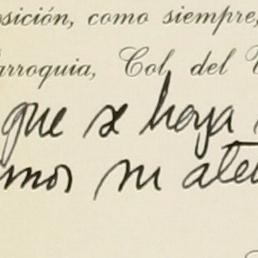 osición, como siempre,
arroquia, Col. del V
que se haya
mos su aten